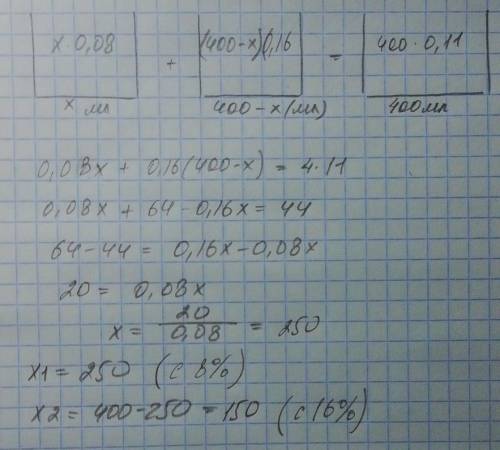 x · 0,08 + (400-x)0,16 = 400 · 0,11
x мл 400-x (мл) 400мл
0,08x + 0,16(400-x) = 4·11
0,08x + 64 - 0,16x = 44
64-44 = 0,16x - 0,08x
20 = 0,08x
x = 20/0,08 = 250
x1 = 250 (с 8%)
x2 = 400-250 = 150 (с 16%)